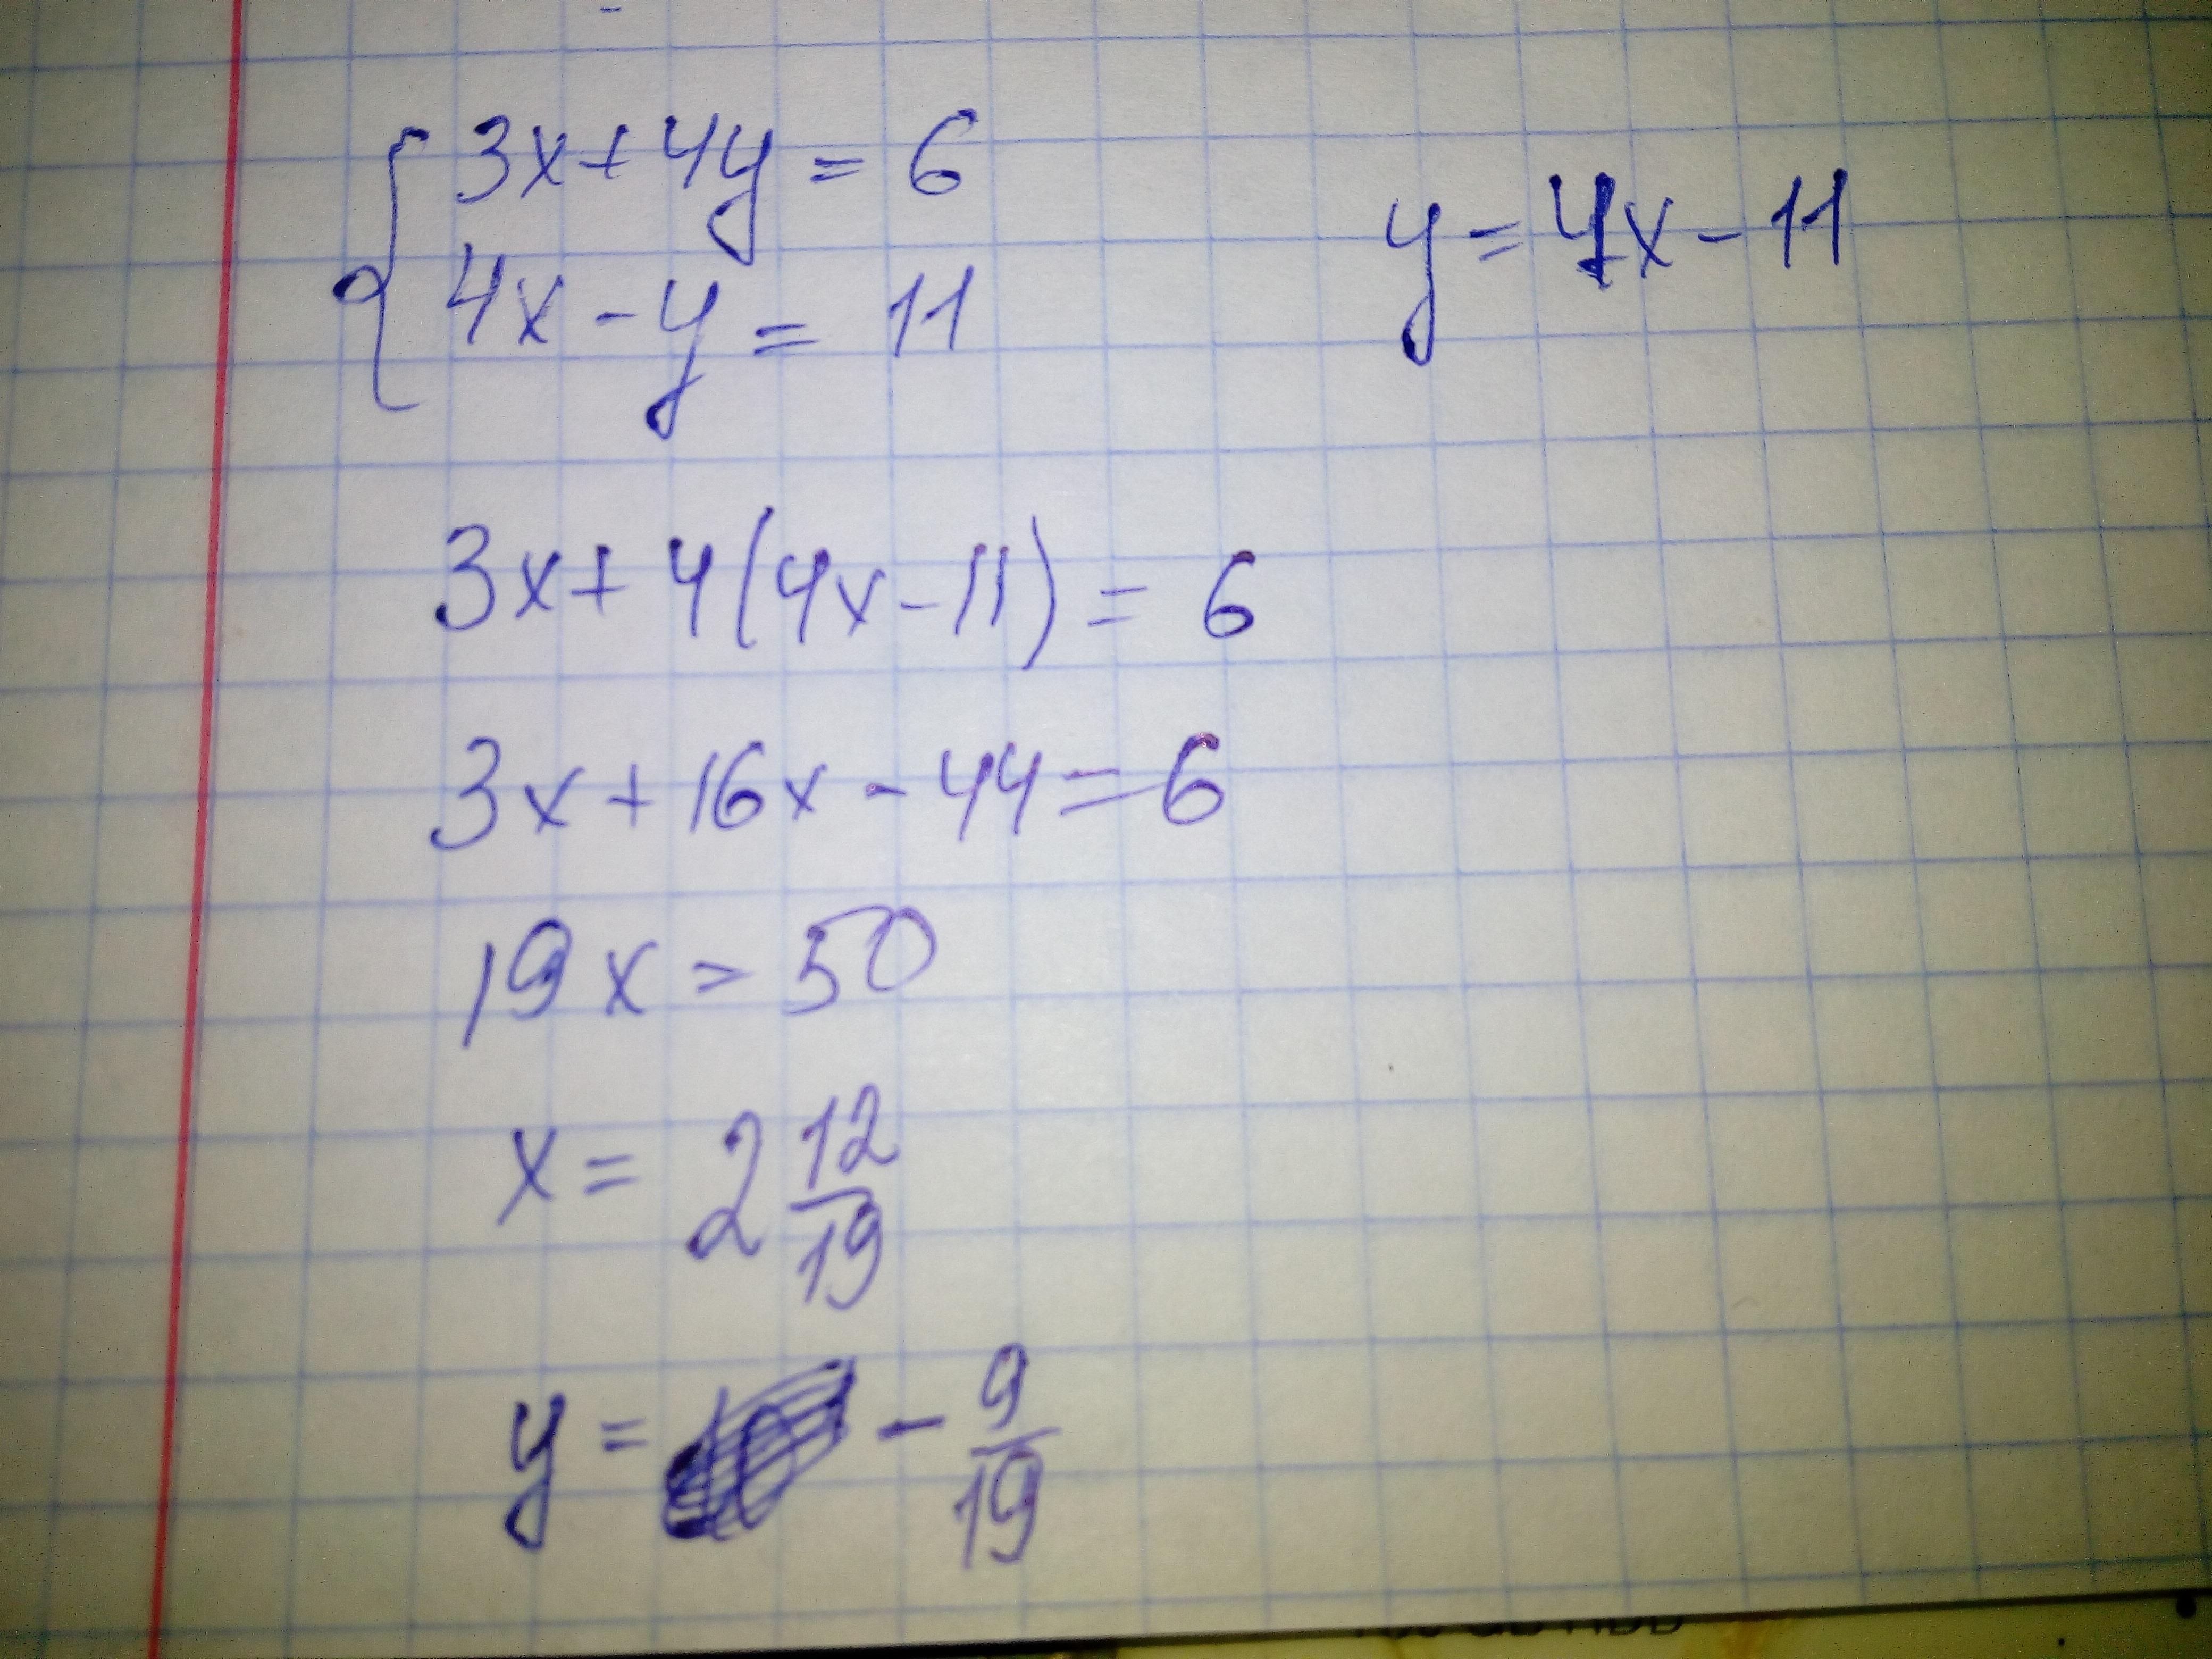 3x+4y=6
4x-y=11
y=4x-11
3x+4(4x-11)=6
3x+16x-44=6
19x=50
x=2 12/19
y= -9/19